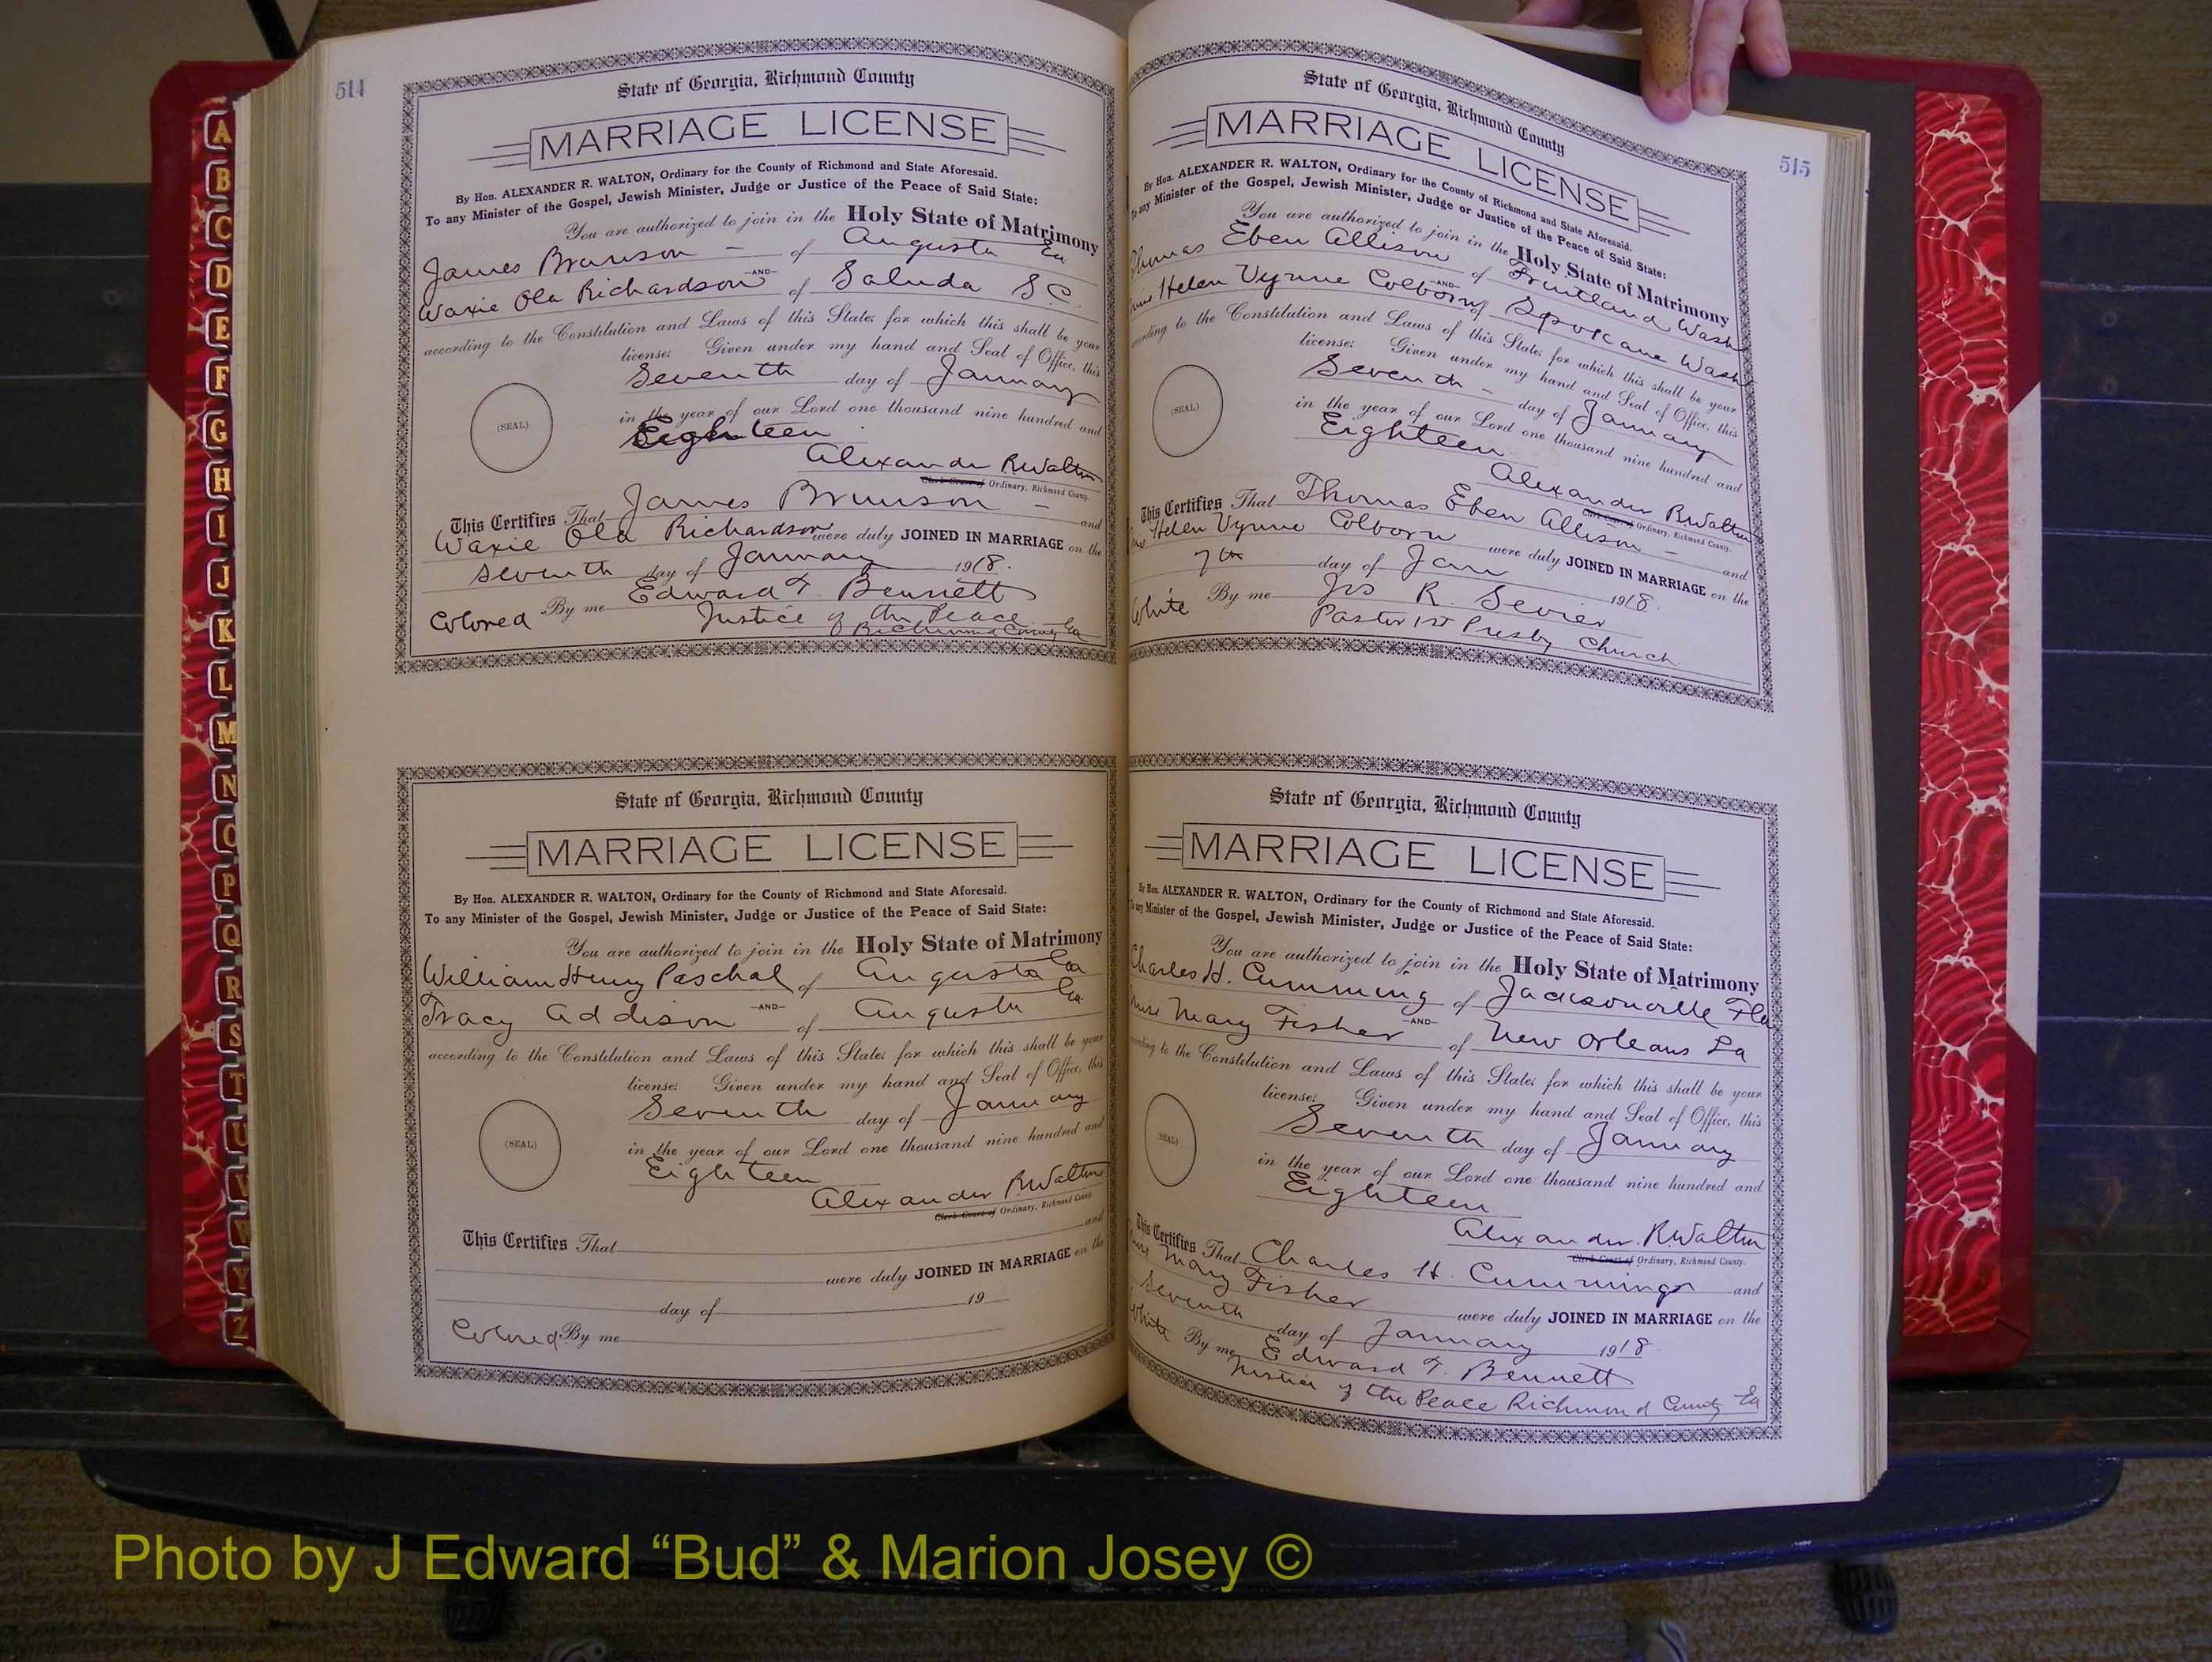 514
State of Georgia, Richmond County
MARRIAGE LICENSE
By Hon. ALEXANDER R. WALTON, Ordinary for the County of Richmond and State Aforesaid.
To any Minister of the Gospel, Jewish Minister, Judge or Justice of the Peace of Said State:
You are authorized to join in the Holy State of Matrimony
James Brunson — of Augusta Ga
—AND—
Waxie Ola Richardson of Saluda S.C.
according to the Constitution and Laws of this State; for which this shall be your
license: Given under my hand and Seal of Office, this
Seventh day of January
(SEAL)
in the year of our Lord one thousand nine hundred and
Eighteen
Alexander R Walton
Clerk Court of Ordinary, Richmond County.
This Certifies That James Brunson — and
Waxie Ola Richardson were duly JOINED IN MARRIAGE on the
seventh day of January 1918.
Colored By me Edward T. Bennett
Justice of the Peace
Richmond County Ga
State of Georgia, Richmond County
MARRIAGE LICENSE
By Hon. ALEXANDER R. WALTON, Ordinary for the County of Richmond and State Aforesaid.
To any Minister of the Gospel, Jewish Minister, Judge or Justice of the Peace of Said State:
You are authorized to join in the Holy State of Matrimony
William Henry Paschal of Augusta Ga
—AND—
Tracy Addison of Augusta Ga.
according to the Constitution and Laws of this State; for which this shall be your
license: Given under my hand and Seal of Office, this
Seventh day of January
(SEAL)
in the year of our Lord one thousand nine hundred and
Eighteen
Alexander R Walton
Clerk Court of Ordinary, Richmond County
This Certifies That and
were duly JOINED IN MARRIAGE on the
day of 19
Colored By me
515
State of Georgia, Richmond County
MARRIAGE LICENSE
By Hon. ALEXANDER R. WALTON, Ordinary for the County of Richmond and State Aforesaid.
To any Minister of the Gospel, Jewish Minister, Judge or Justice of the Peace of Said State:
You are authorized to join in the Holy State of Matrimony
Thomas Eben Allison of Fruitland Wash
—AND—
Miss Helen Vynne Colborn of Spokane Wash
according to the Constitution and Laws of this State; for which this shall be your
license: Given under my hand and Seal of Office, this
Seventh — day of January
(SEAL)
in the year of our Lord one thousand nine hundred and
Eighteen
Alexander R Walton
Clerk Court of Ordinary, Richmond County.
This Certifies That Thomas Eben Allison — and
Helen Vynne Colborn were duly JOINED IN MARRIAGE on the
7th day of Jan 1918.
White By me Jos R. Sevier
Pastor 1st Presby Church
State of Georgia, Richmond County
MARRIAGE LICENSE
By Hon. ALEXANDER R. WALTON, Ordinary for the County of Richmond and State Aforesaid.
To any Minister of the Gospel, Jewish Minister, Judge or Justice of the Peace of Said State:
You are authorized to join in the Holy State of Matrimony
Charles H. Cumming of Jacksonville Fla
—AND—
Miss Mary Fisher of New Orleans La
according to the Constitution and Laws of this State; for which this shall be your
license: Given under my hand and Seal of Office, this
Seventh day of January
(SEAL)
in the year of our Lord one thousand nine hundred and
Eighteen
Alexander R Walton
Clerk Court of Ordinary, Richmond County.
This Certifies That Charles H. Cummings and
Miss Mary Fisher were duly JOINED IN MARRIAGE on the
Seventh day of January 1918.
White By me Edward T. Bennett
Justice of the Peace Richmond County Ga
A
B
C
D
E
F
G
H
I
J
K
L
M
N
O
P
Q
R
S
T
U
V
W
Y
Z
Photo by J Edward “Bud” & Marion Josey ©